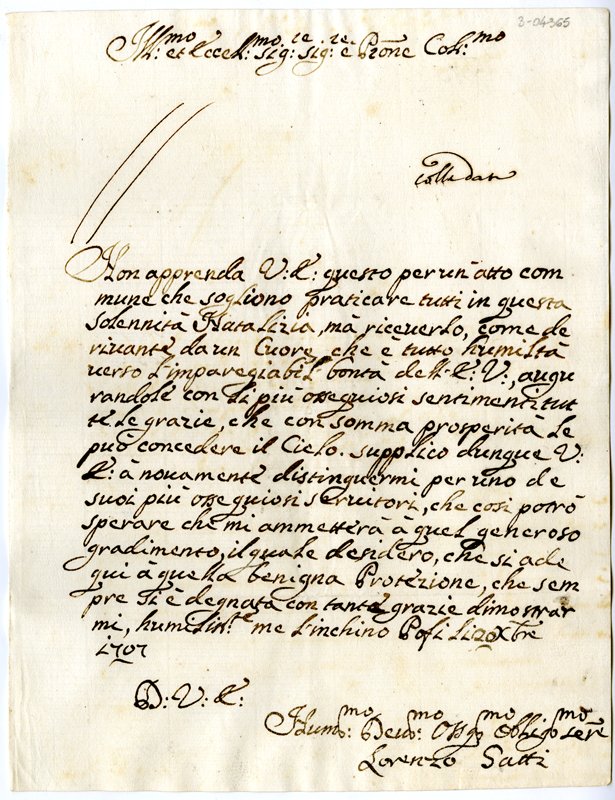 3-04365
Ill:mo et Eccell:mo sig:re sig:re e Prone Coll:mo
Non apprenda V: E: questo per un atto com
mune che sogliono praticare tutti in questa
Solennità Natalizia, mà riceverlo, come de
rivante da un Cuore, che è tutto humiltà
verso l'impareggiabil bontà dell E: V:, augu
randole con li più ossequiosi sentimenti tut
te le grazie, che con somma prosperità le
può concedere il Cielo. supplico dunque V:
E: à novamente distinguermi per uno de
suoi più ossequiosi servitori, che cosi potrò
sperare che mi ammetterà à quel generoso
gradimento, il quale desidero, che si ade
qui à quella benigna Protezione, che sem
pre si è degnata con tante grazie dimostrar
mi, humilm:te me l'inchino Pofi li 20 Xbre
1707
D: V: E:
Hum:mo Devo:mo Ossq:mo Obligo:mo sere
Lorenzo Satti